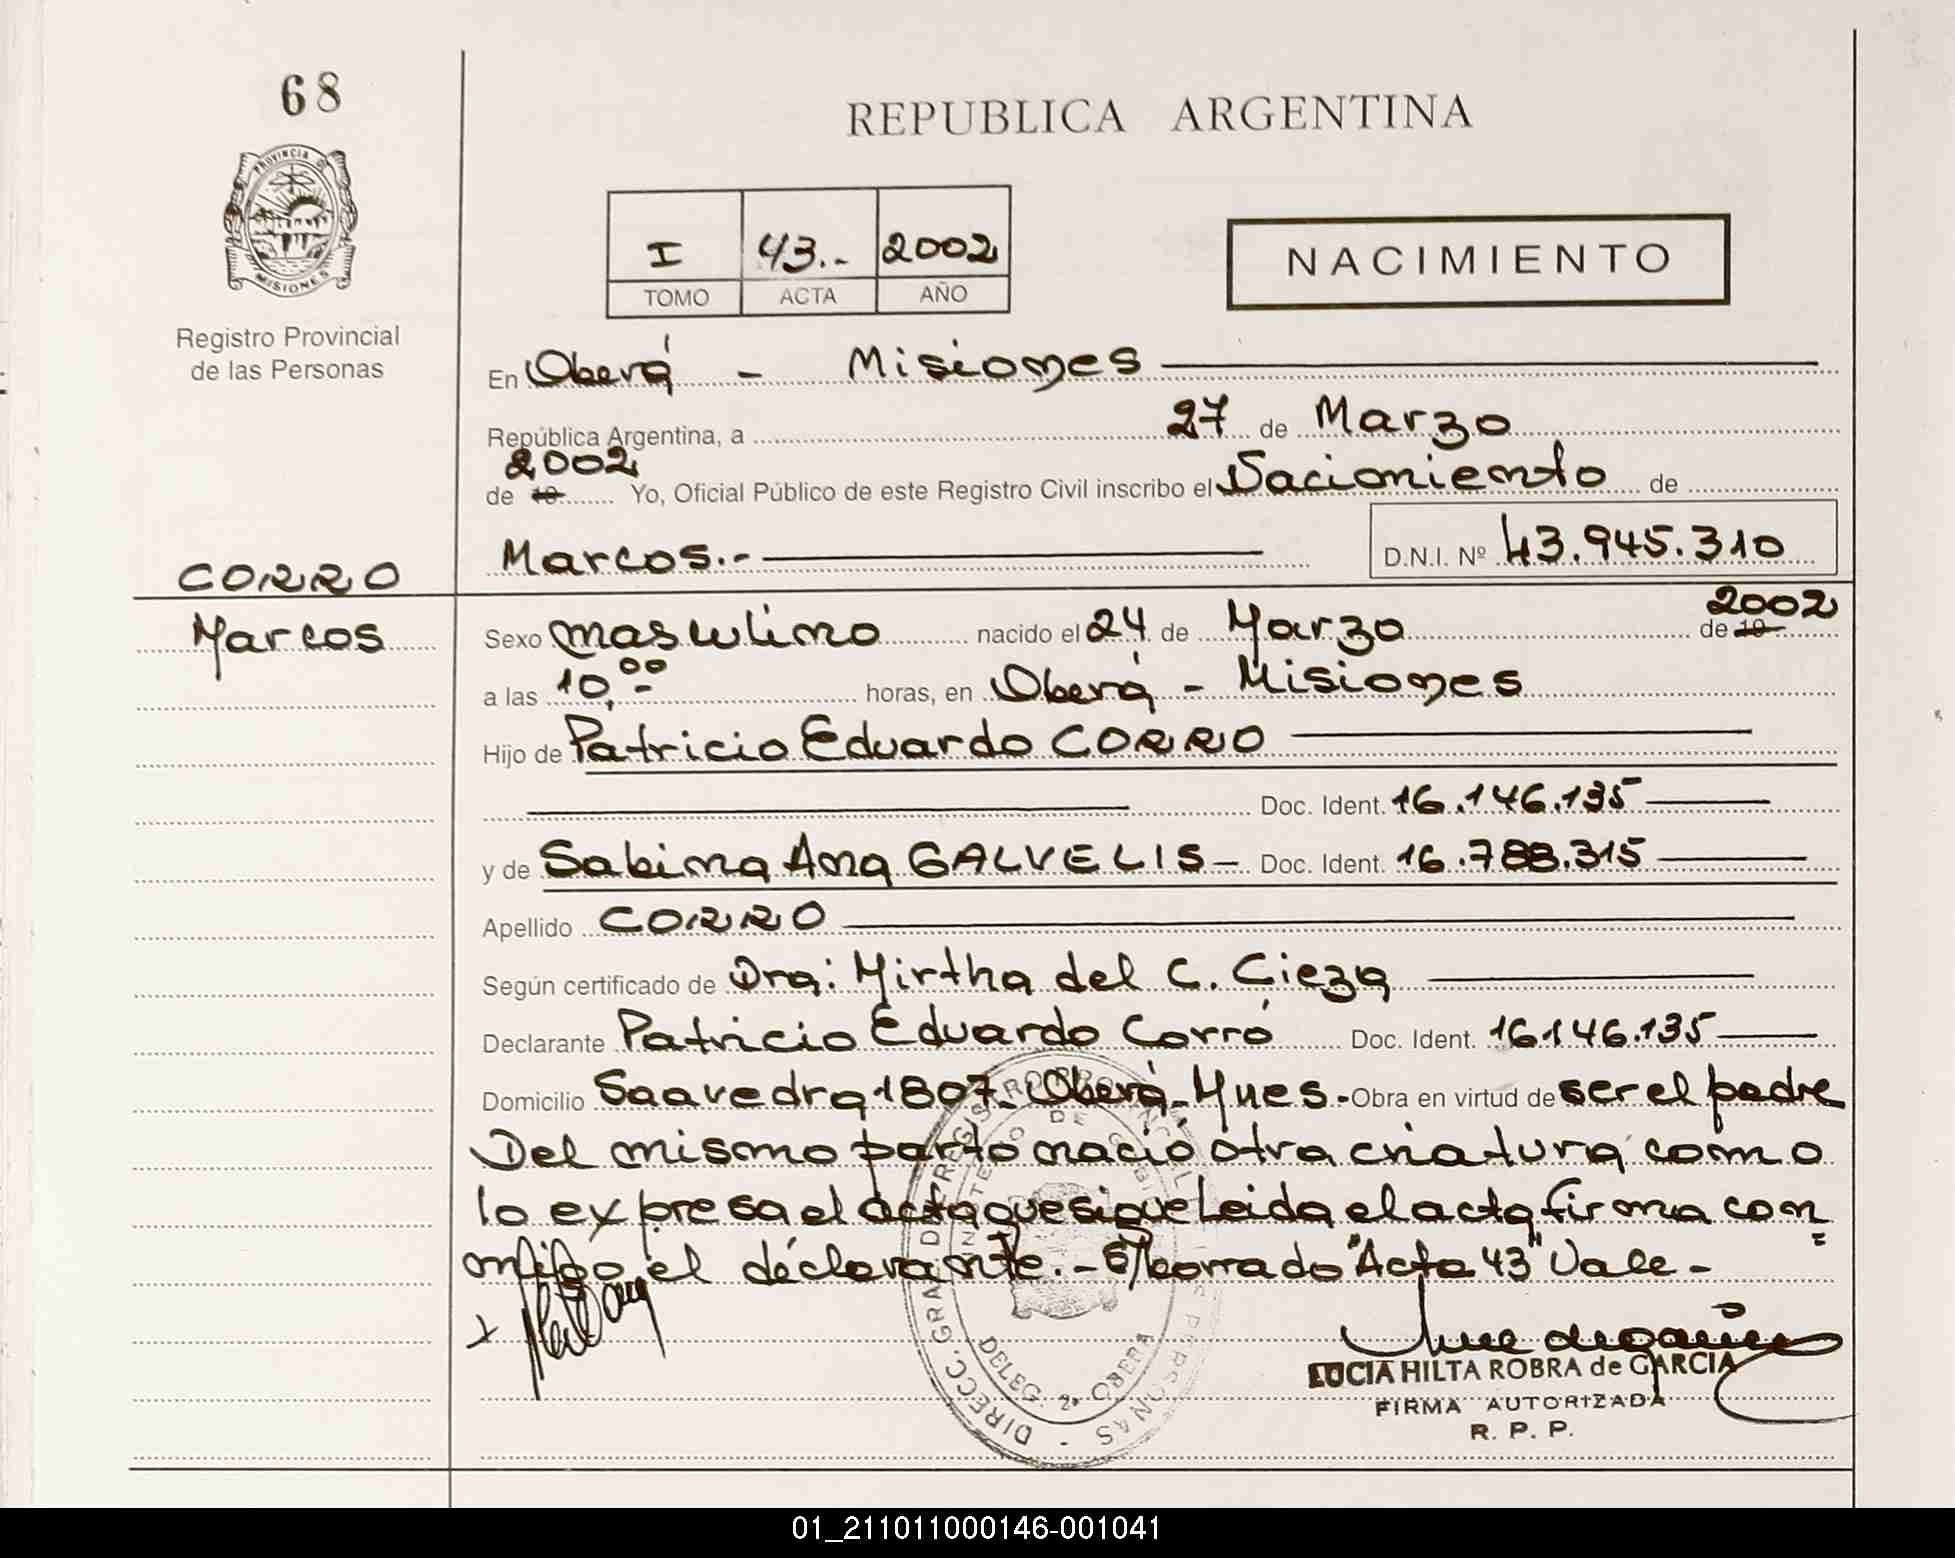 68
REPUBLICA ARGENTINA
PROVINCIA DE MISIONES
Registro Provincial
de las Personas
I 43.- 2002
TOMO ACTA AÑO
NACIMIENTO
En Oberá - Misiones
República Argentina, a 27 de Marzo
2002
de 19 Yo, Oficial Público de este Registro Civil inscribo el Nacimiento de
Marcos.- D.N.I. Nº 43.945.310
CORRO
Marcos
Sexo masculino nacido el 24 de Marzo de 19 2002
a las 10,00 horas, en Oberá - Misiones
Hijo de Patricio Eduardo CORRO
Doc. Ident. 16.146.135
y de Sabina Ana GALVELIS - Doc. Ident. 16.788.315
Apellido CORRO
Según certificado de Dra: Mirtha del C. Cieza
Declarante Patricio Eduardo Corró Doc. Ident. 16.146.135
Domicilio Saavedra 1807. Oberá - Mnes.- Obra en virtud de ser el padre
Del mismo parto nació otra criatura como
lo expresa el acta que sigue Leida el acta firma con=
migo el declarante.- E/borrado "Acta 43" Vale -
x
DIRECC. GRAL. DEL REGISTRO PROVINCIAL DE LAS PERSONAS
DELEG. 2ª OBERA
LUCIA HILTA ROBRA de GARCIA
FIRMA AUTORIZADA
R. P. P.
01_211011000146-001041